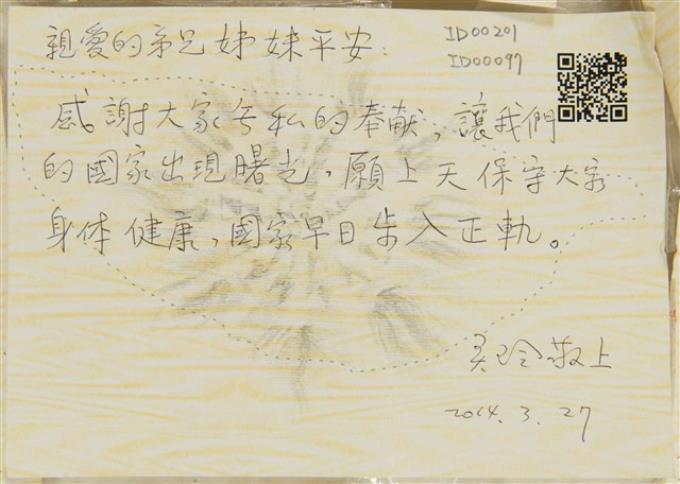 親愛的弟兄姊妹平安:
ID00201
ID00097
感謝大家無私的奉献,讓我們
的國家出現曙光,願上天保守大家
身体健康,國家早日步入正軌。
美玲敬上
2014.3.27